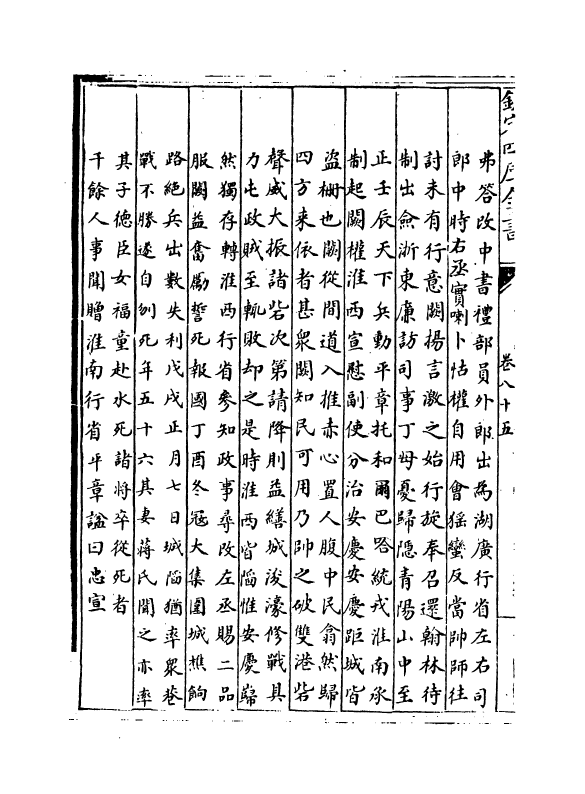 欽定四庫全書
卷八十五
弗答改中書禮部員外郎出為湖廣行省左右司
郎中時右丞實喇卜怙權自用會猺蠻反當帥師往
討未有行意闕揚言激之始行旋奉召還翰林待
制出僉浙東廉訪司事丁母憂歸隱青陽山中至
正壬辰天下兵動平章托和爾巴咯統戎淮南承
制起闕權淮西宣慰副使分治安慶安慶距城皆
盜柵也闕從間道入推赤心置人腹中民翕然歸
四方來依者甚衆闕知民可用乃帥之破雙港砦
聲威大振諸砦次第請降則益繕城浚濠修戰具
力屯政賊至輒敗却之是時淮西皆陷惟安慶巋
然獨存轉淮西行省參知政事尋改左丞賜二品
服闕益奮勵誓死報國丁酉冬寇大集圍城樵餉
路絕兵出數失利戊戌正月七日城陷猶率衆巷
戰不勝遂自刎死年五十六其妻蔣氏聞之亦率
其子德臣女福童赴水死諸將卒從死者
千餘人事聞贈淮南行省平章諡曰忠宣